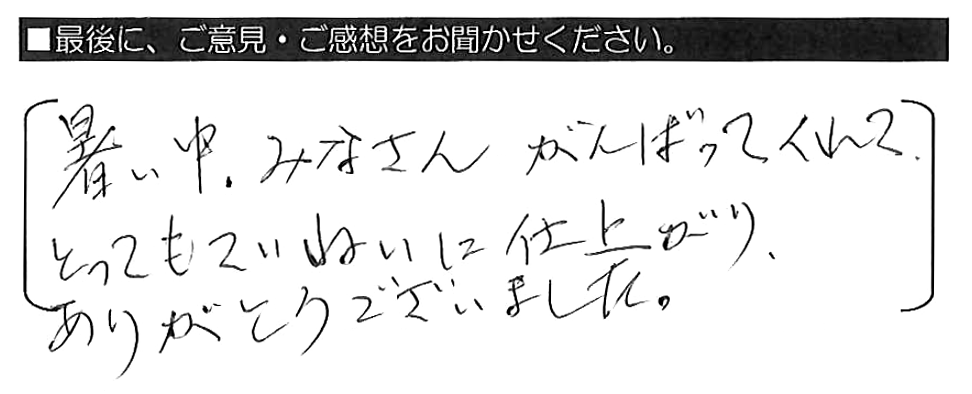 ■最後に、ご意見・ご感想をお聞かせください。
暑い中、みなさん がんばってくれて、
とってもていねいに仕上がり、
ありがとうございました。